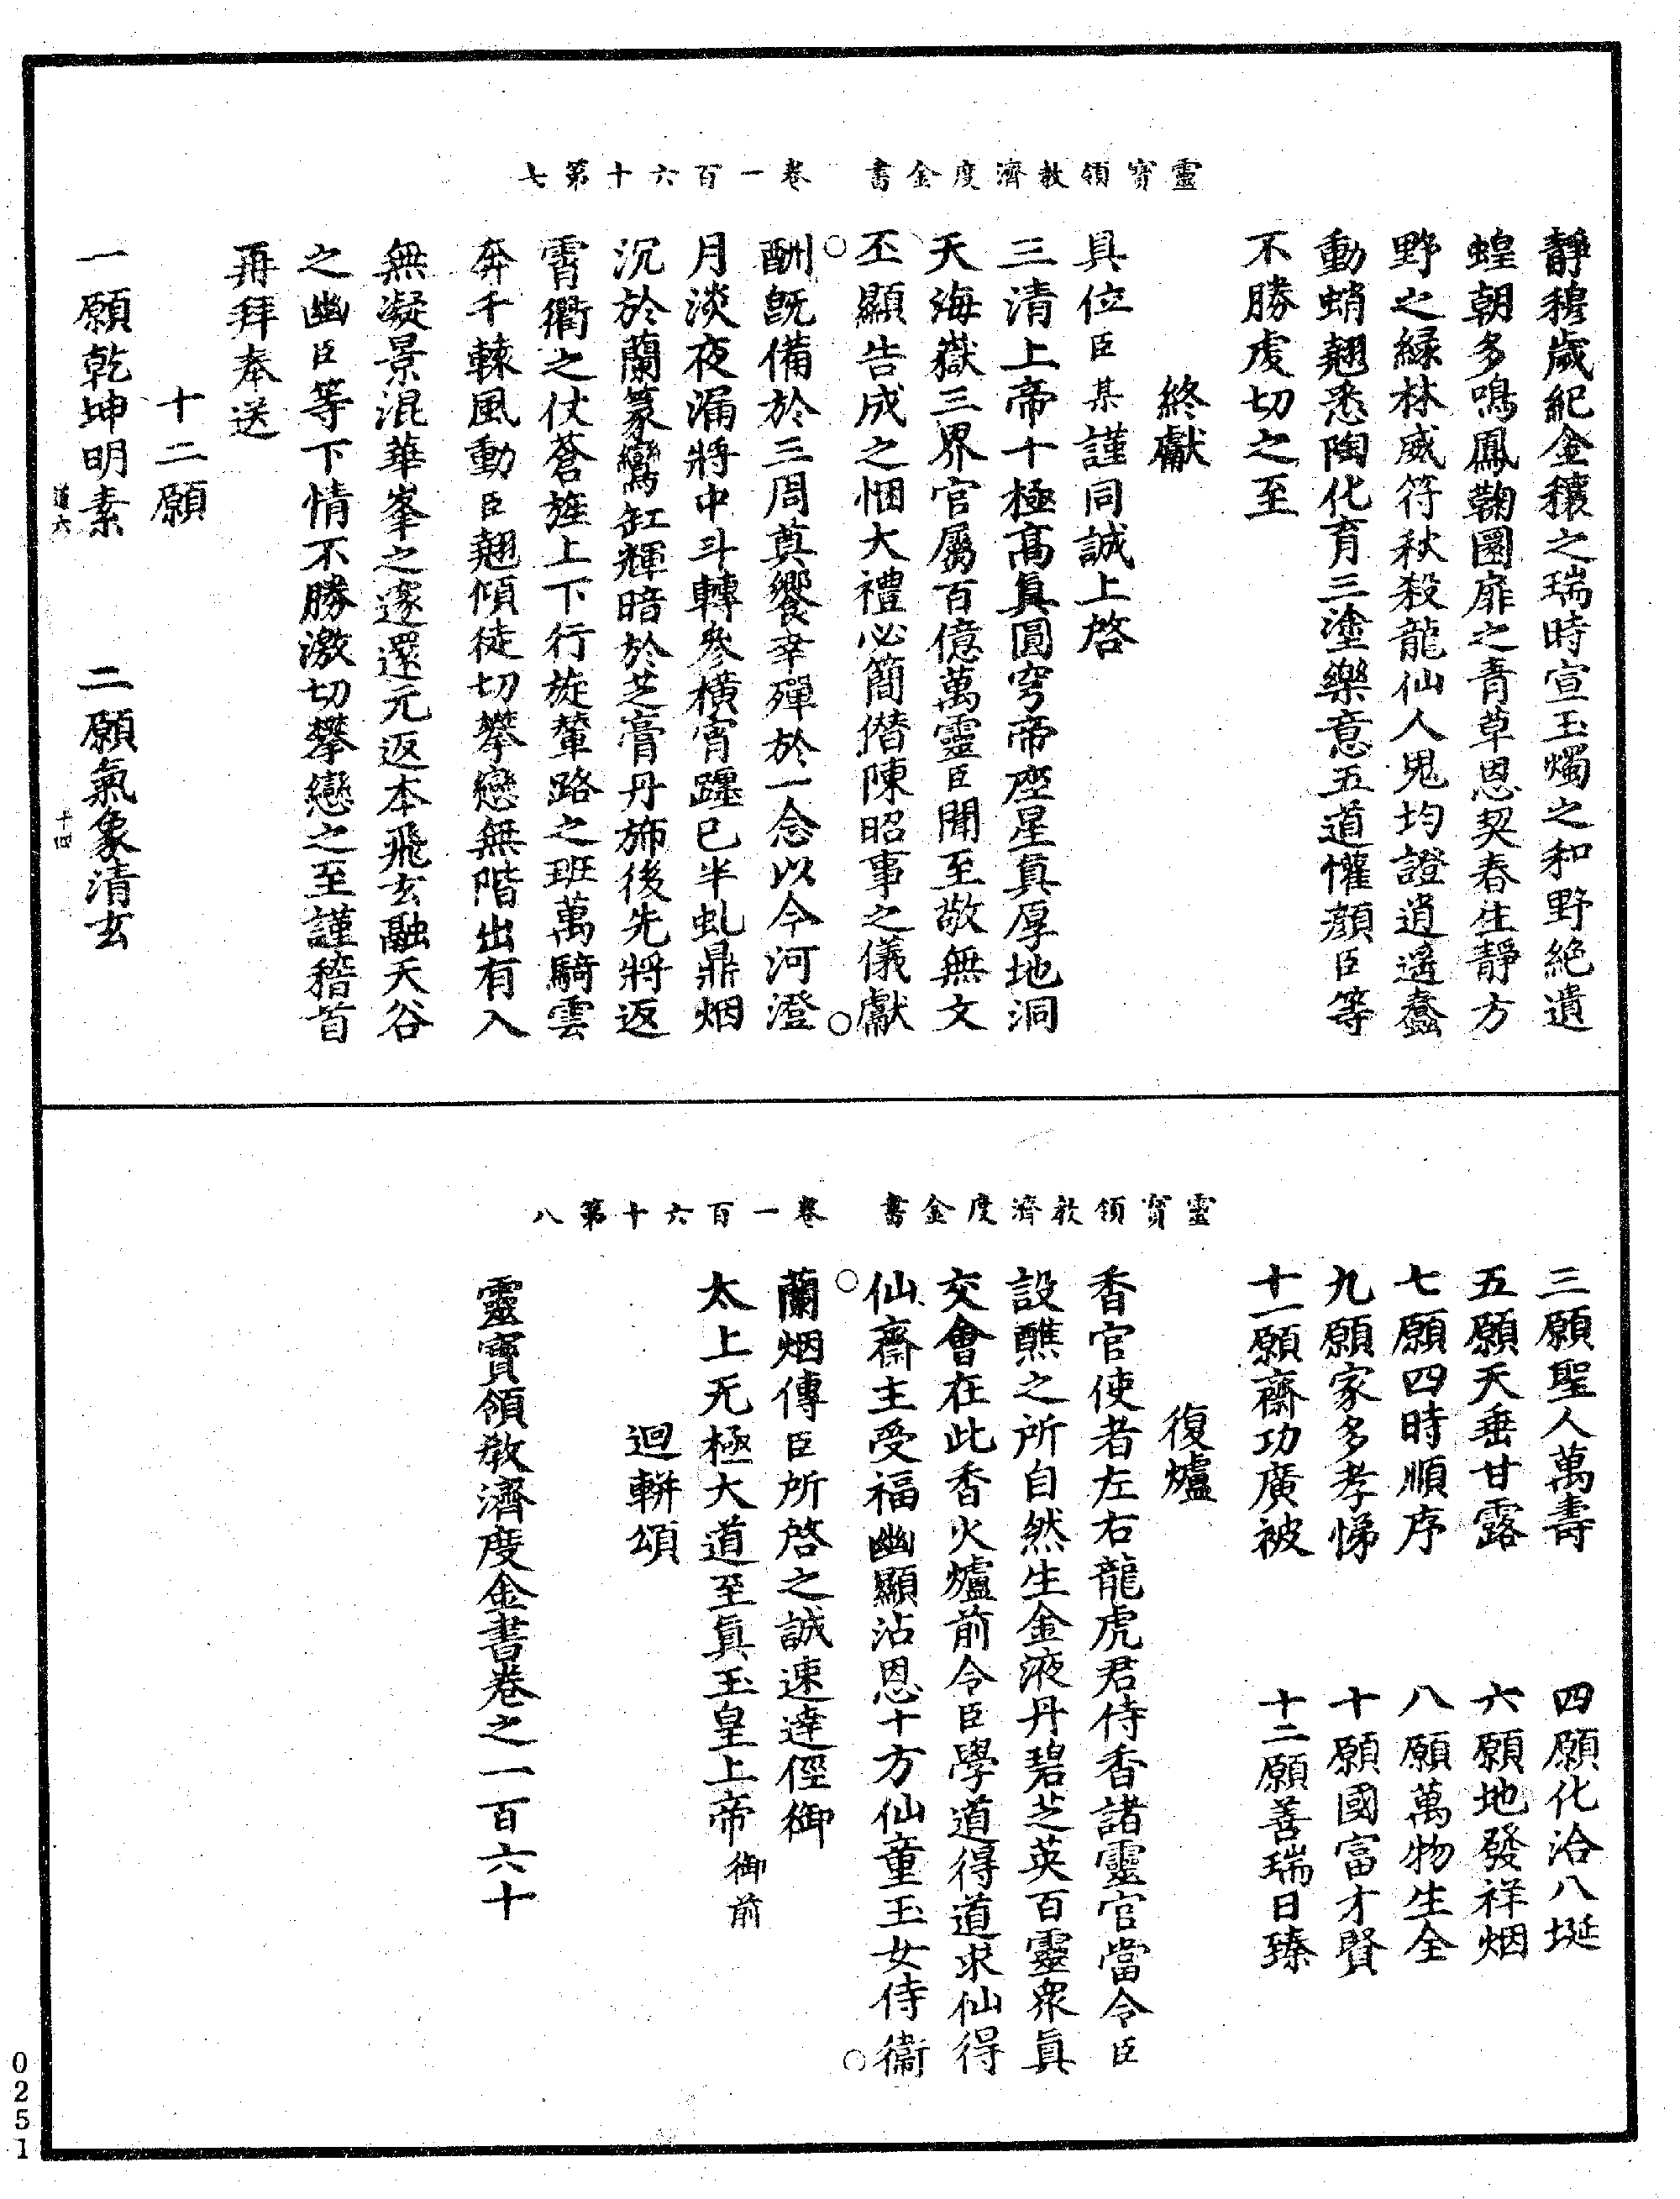 靈寶領教濟度金書　卷一百六十第七
靜穆歲紀金穰之瑞時宣玉燭之和野絕遺
蝗朝多鳴鳳鞠圜扉之青草恩契春生靜方
野之綠林威符秋殺龍仙人鬼均證逍遙蠢
動蛸翹悉陶化育三塗樂意五道懽顏臣等
不勝虔切之至
終獻
具位臣某謹同誠上啓
三清上帝十極高眞圓穹帝座星眞厚地洞
天海嶽三界官屬百億萬靈臣聞至敬無文
丕顯告成之悃大禮必簡僣陳昭事之儀獻
酬旣備於三周奠饗幸殫於一念以今河澄
月淡夜漏將中斗轉參橫宵躔已半虬鼎烟
沉於蘭篆鸞缸輝暗於芝膏丹斾後先將返
霄衢之仗蒼旌上下行旋輦路之班萬騎雲
奔千輬風動臣翹傾徒切攀戀無階出有入
無凝景混華峯之邃還元返本飛玄融天谷
之幽臣等下情不勝激切攀戀之至謹稽首
再拜奉送
十二願
一願乾坤明素　二願氣象清玄
道六　十四
靈寶領教濟度金書　卷一百六十第八
三願聖人萬壽　四願化洽八埏
五願天垂甘露　六願地發祥烟
七願四時順序　八願萬物生全
九願家多孝悌　十願國富才賢
十一願齋功廣被　十二願善瑞日臻
復爐
香官使者左右龍虎君侍香諸靈官當令臣
設醮之所自然生金液丹碧芝英百靈衆眞
交會在此香火爐前令臣學道得道求仙得
仙齋主受福幽顯沾恩十方仙童玉女侍衞
蘭烟傳臣所啓之誠速達徑御
太上无極大道至眞玉皇上帝御前
迴輧頌
靈寶領教濟度金書卷之一百六十
0251